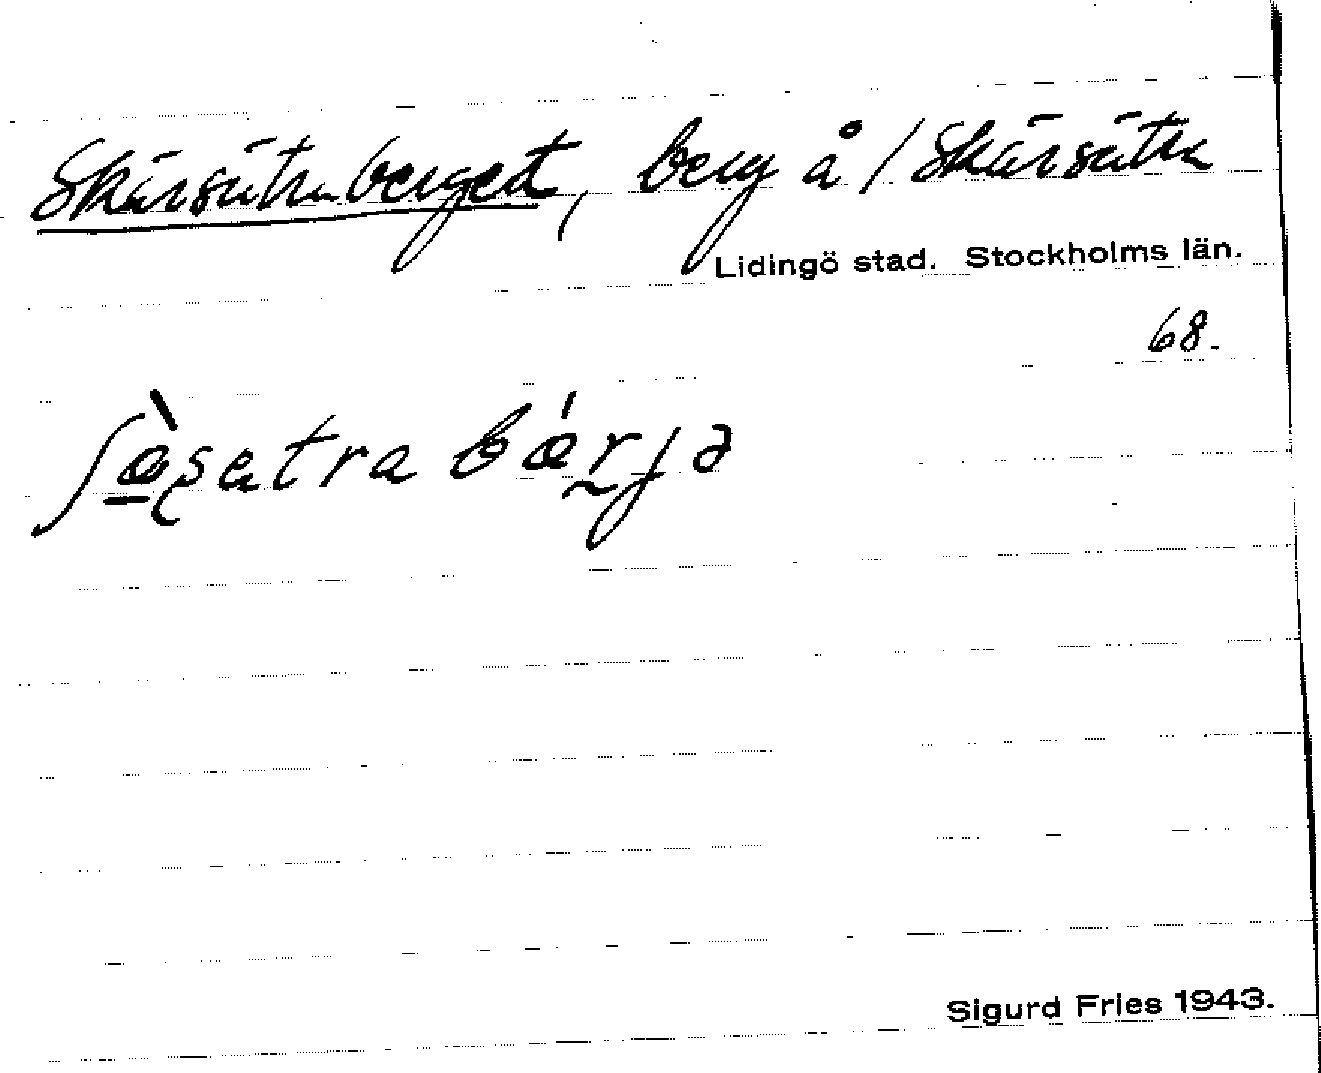 Skärsätraberget, berg å / Skärsätra
Lidingö stad. Stockholms län.
68.
ʃæ̀ṣatra bǽrjə
Sigurd Fries 1943.